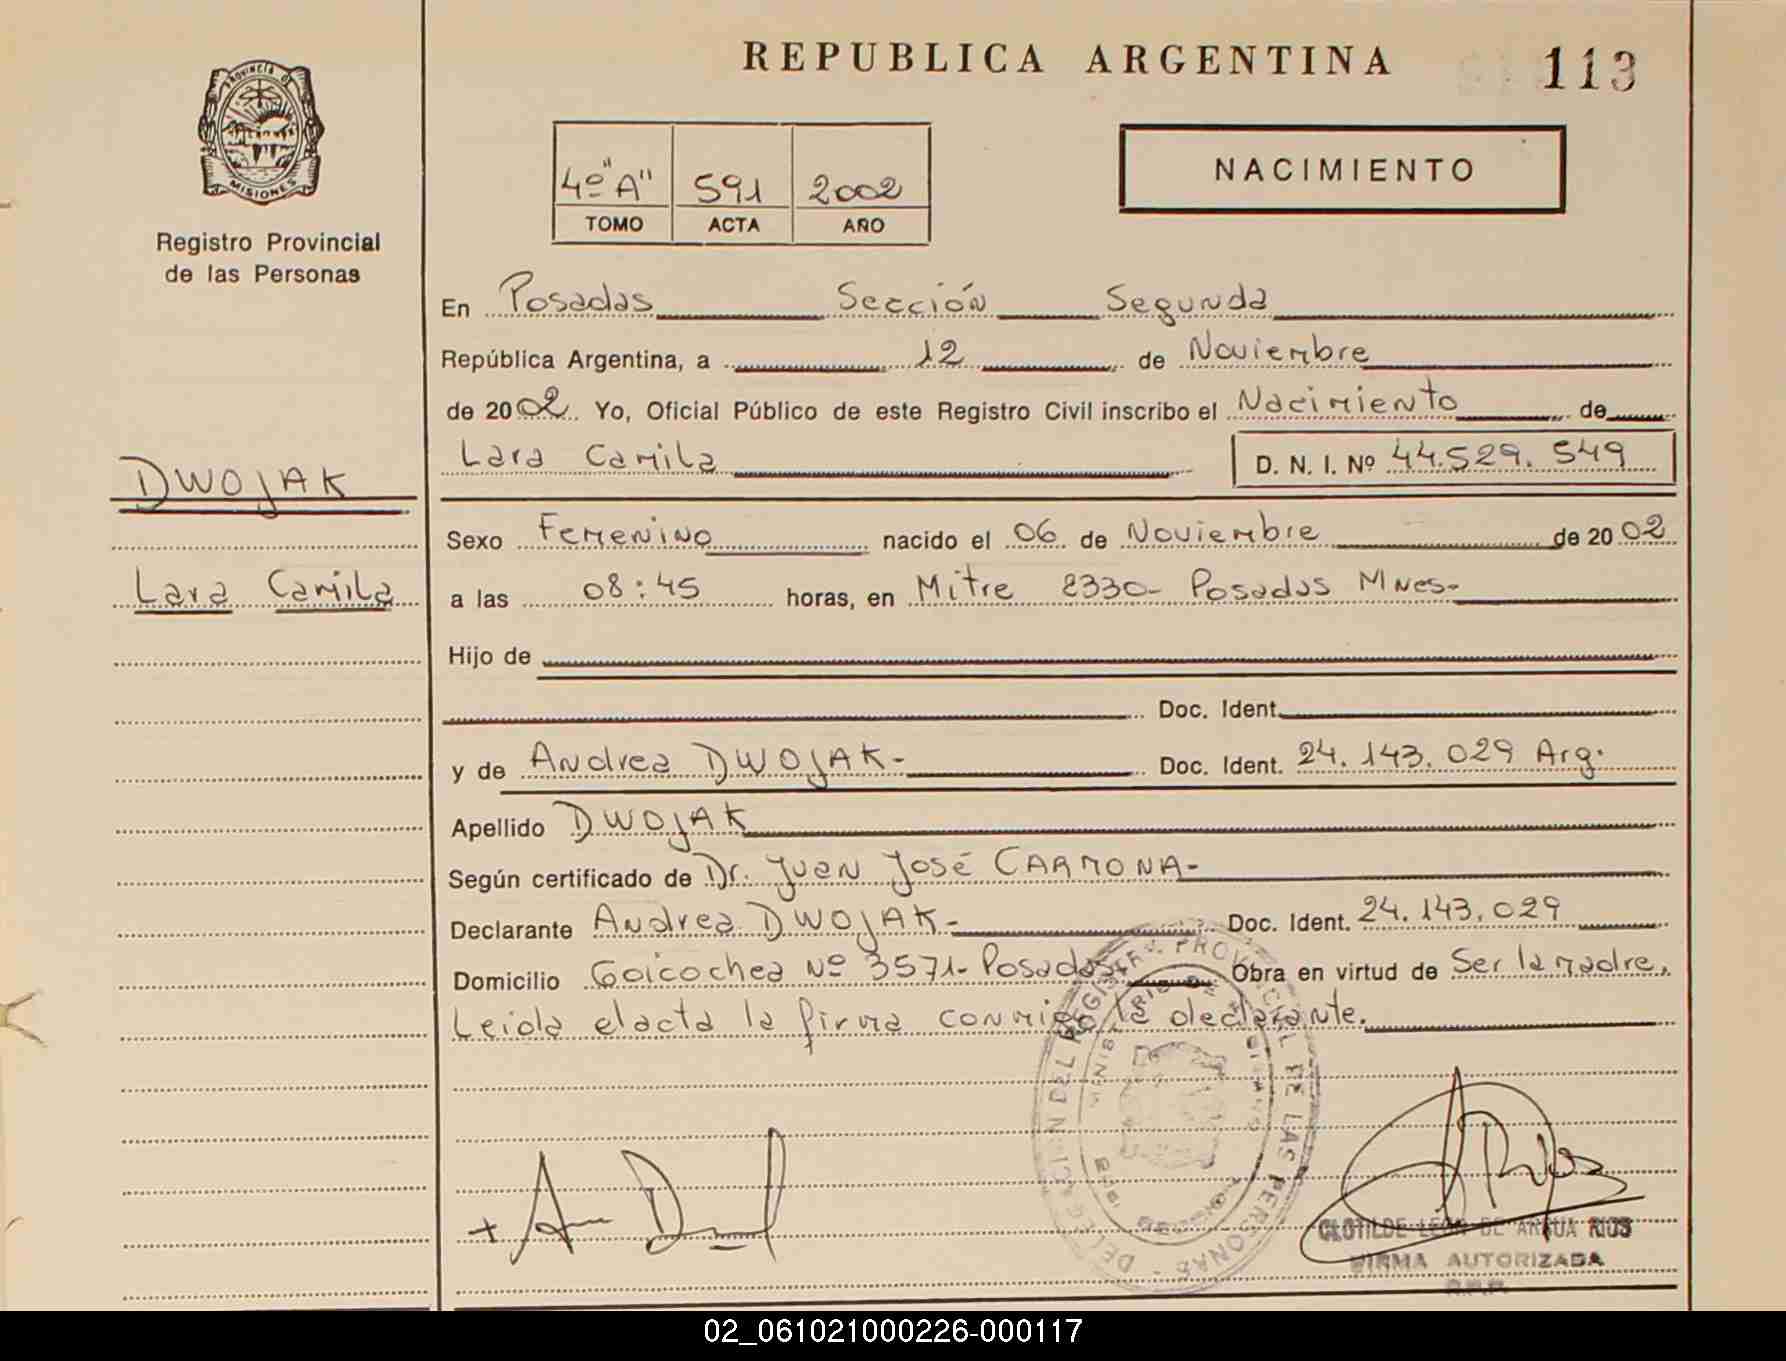 REPUBLICA ARGENTINA
113
PROVINCIA DE
MISIONES
Registro Provincial
de las Personas
4º "A" 591 2002
TOMO ACTA AÑO
NACIMIENTO
En Posadas Sección Segunda
República Argentina, a 12 de Noviembre
de 2002 Yo, Oficial Público de este Registro Civil inscribo el Nacimiento de
Lara Camila D. N. I. Nº 44.529.549
DWOJAK
Lara Camila
Sexo Femenino nacido el 06 de Noviembre de 2002
a las 08:45 horas, en Mitre 2330- Posadas Mnes-
Hijo de
Doc. Ident.
y de Andrea DWOJAK- Doc. Ident. 24.143.029 Arg.
Apellido DWOJAK
Según certificado de Dr. Juan José CARMONA-
Declarante Andrea DWOJAK- Doc. Ident. 24.143.029
Domicilio Goicochea Nº 3571- Posadas Obra en virtud de Ser la madre.
Leida el acta la firma conmigo la declarante.
DEL REGISTRO PROVINCIAL DE LAS PERSONAS
CLOTILDE LEON DE ANGUA RIOS
FIRMA AUTORIZADA
02_061021000226-000117